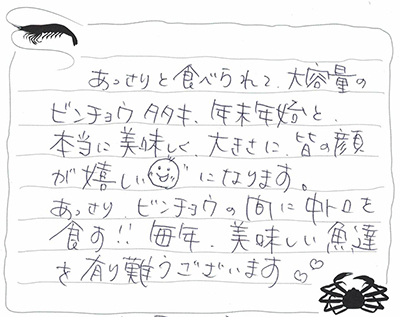 あっさりと食べられて、大容量の
ビンチョウタタキ、年末年始と、
本当に美味しく、大きさに、皆の顔
が嬉しい になります。
あっさり、ビンチョウの間に中トロを
食す!! 毎年、美味しい魚達
を有り難うございます♡♡